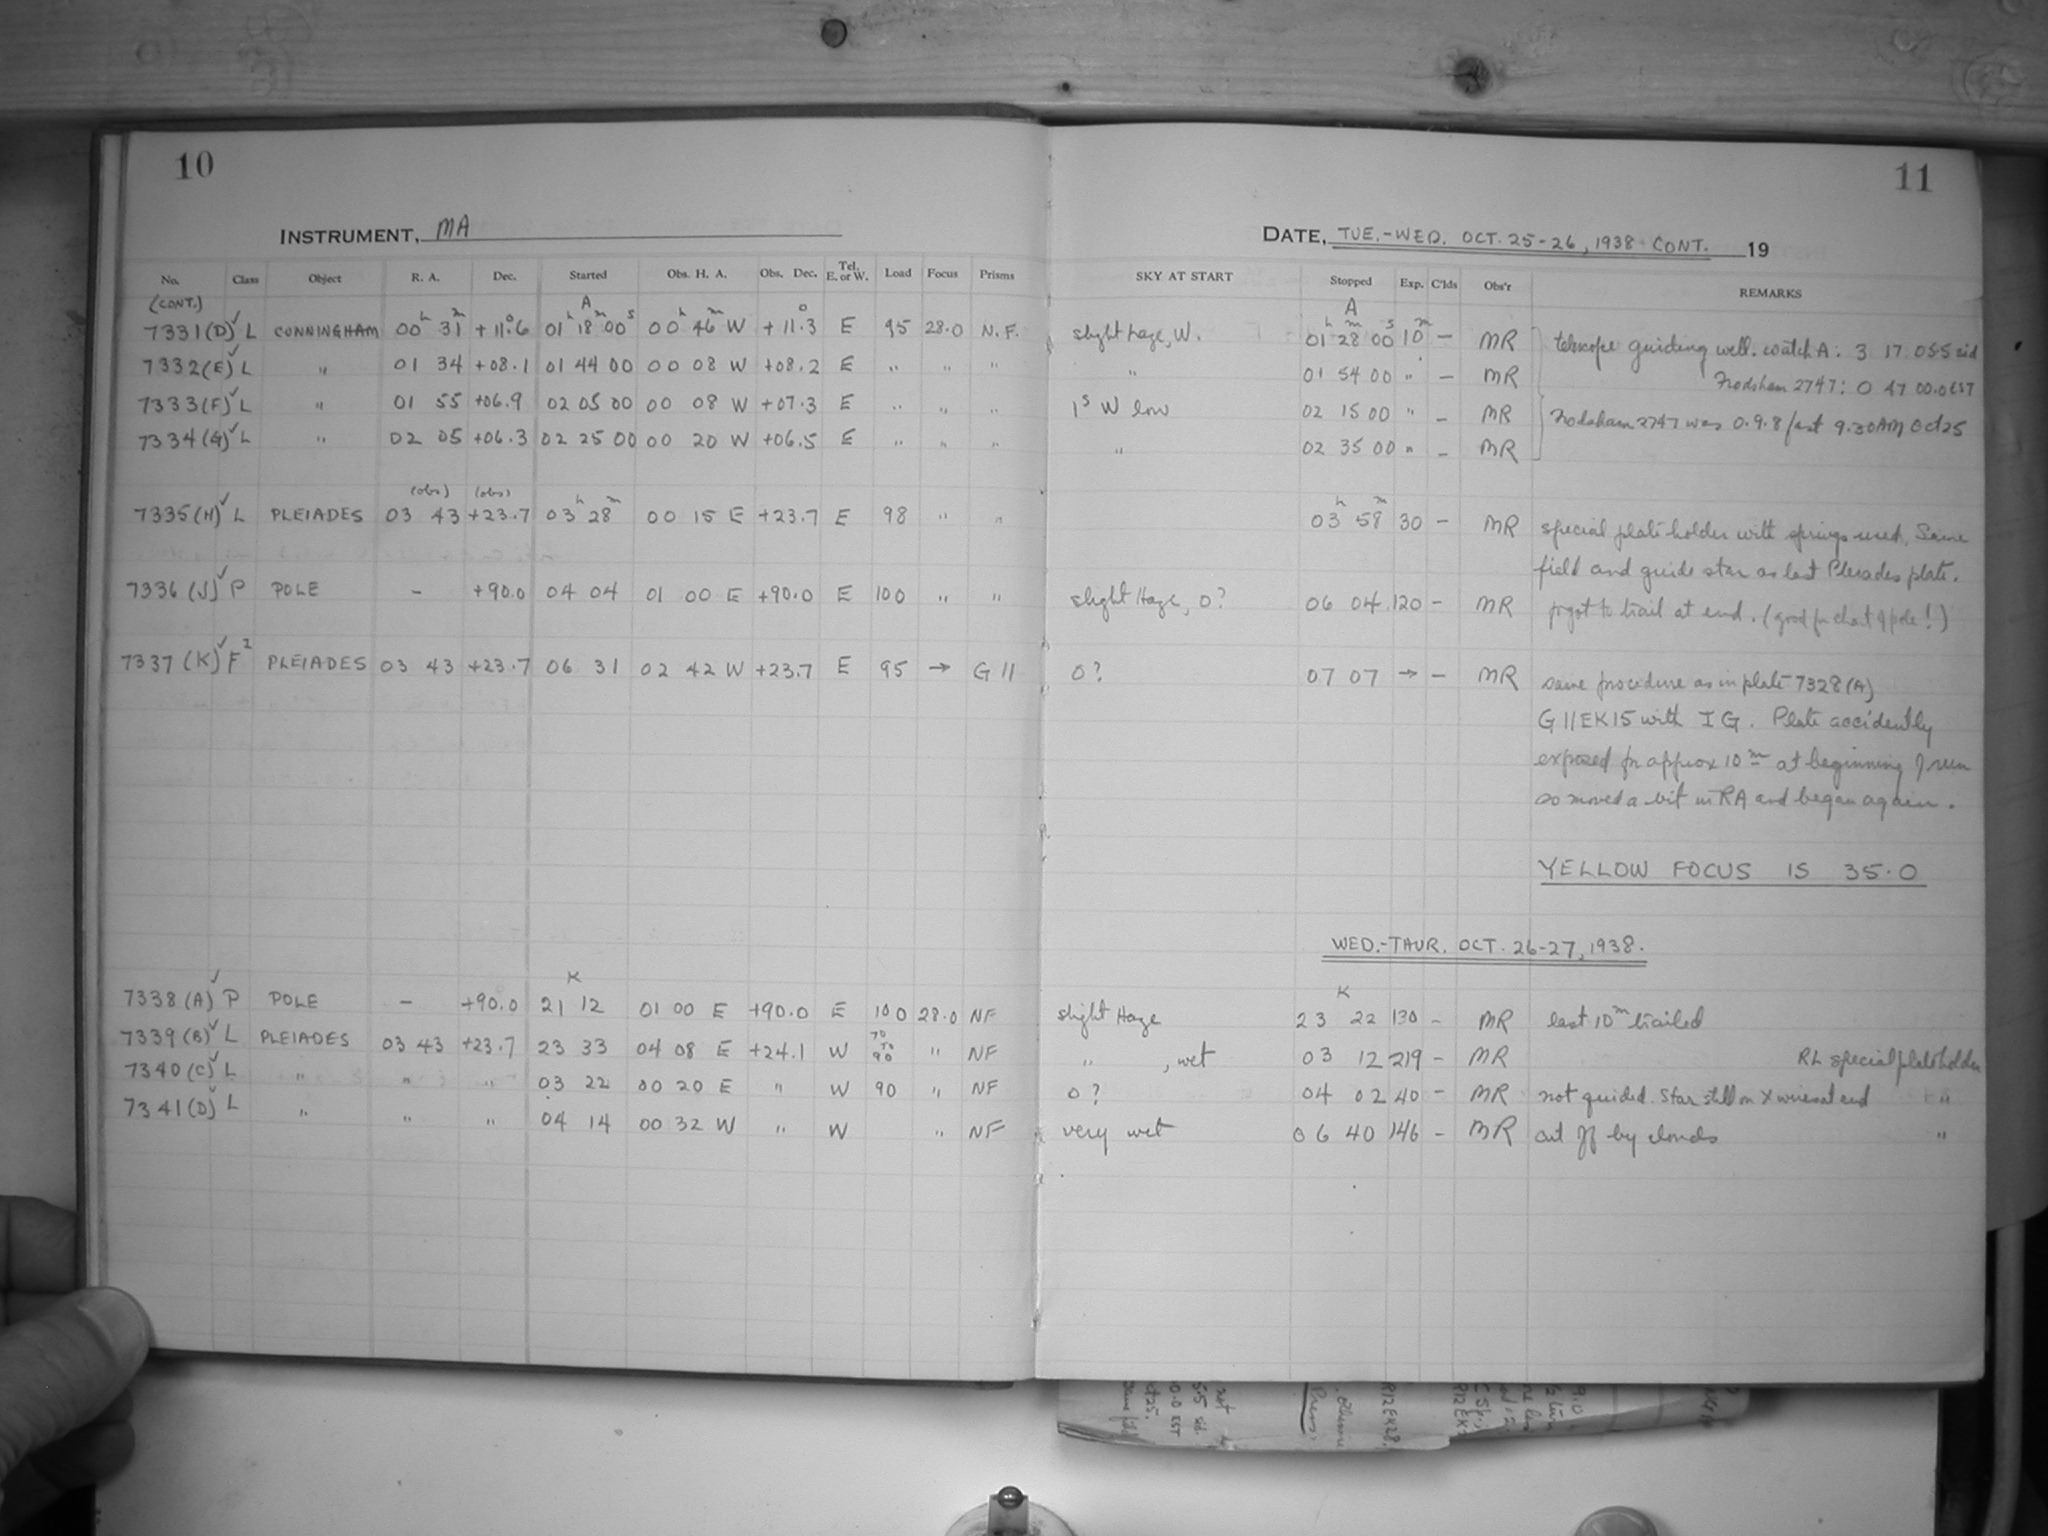 10
INSTRUMENT, MA
No. Class Object R. A. Dec. Started Obs. H. A. Obs. Dec. Tel. E. or W. Load Focus Prisms
(CONT.) A
7331(D)✓ L CUNNINGHAM 00h 31m +11°.6 01h 18m 00s 00h 46m W +11°.3 E 95 28.0 N.F.
7332(E)✓ L " 01 34 +08.1 01 44 00 00 08 W +08.2 E " " "
7333(F)✓ L " 01 55 +06.9 02 05 00 00 08 W +07.3 E " " "
7334(G)✓ L " 02 05 +06.3 02 25 00 00 20 W +06.5 E " " "
(obs) (obs)
7335(H)✓ L PLEIADES 03 43 +23.7 03h 28m 00 15 E +23.7 E 98 " "
7336(J)✓ P POLE - +90.0 04 04 01 00 E +90.0 E 100 " "
7337(K)✓ F2 PLEIADES 03 43 +23.7 06 31 02 42 W +23.7 E 95 → G 11
K
7338(A)✓ P POLE - +90.0 21 12 01 00 E +90.0 E 100 28.0 NF
7339(B)✓ L PLEIADES 03 43 +23.7 23 33 04 08 E +24.1 W 70 to 90 " NF
7340(C)✓ L " " " 03 22 00 20 E " W 90 " NF
7341(D)✓ L " " " 04 14 00 32 W " W " NF
11
DATE, TUE.-WED. OCT. 25-26, 1938 CONT. 19
SKY AT START Stopped Exp. C'lds Obs'r REMARKS
A
slight haze, W. 01h 28m 00s 10m - MR telescope guiding well. watch A: 3 17 05.5 sid
" 01 54 00 " - MR Frodsham 2747: 0 47 00.0 EST
1s W low 02 15 00 " - MR Frodsham 2747 was 0.9.8 fast 9.30AM Oct 25
" 02 35 00 " - MR
03h 58m 30 - MR special plateholder with springs used. Same
field and guide star as last Pleiades plate.
slight Haze, 0? 06 04 120 - MR forgot to trail at end. (good for chart of pole!)
0? 07 07 → - MR same procedure as in plate 7328(A)
G11EK15 with IG. Plate accidently
exposed for approx 10m at beginning of run
so moved a bit in RA and began again.
YELLOW FOCUS IS 35.0
WED.-THUR. OCT. 26-27, 1938.
K
slight Haze 23 22 130 - MR last 10m trailed
" , wet 03 12 219 - MR RL special plateholder
0? 04 02 40 - MR not guided. Star still on X wires at end "
very wet 06 40 146 - MR cut off by clouds "
not
5.5 sid.
0.0 EST
ct 25.
same field
Press:
R12EK28.
R12EK